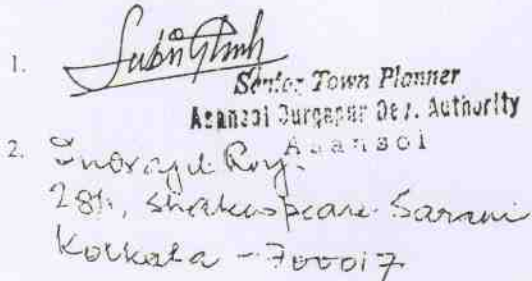 1.
Senior Town Planner
Asansol Durgapur Dev. Authority
Asansol
2. Indrajit Roy.
28h, Shakespeare Sarani
Kolkata - 700017